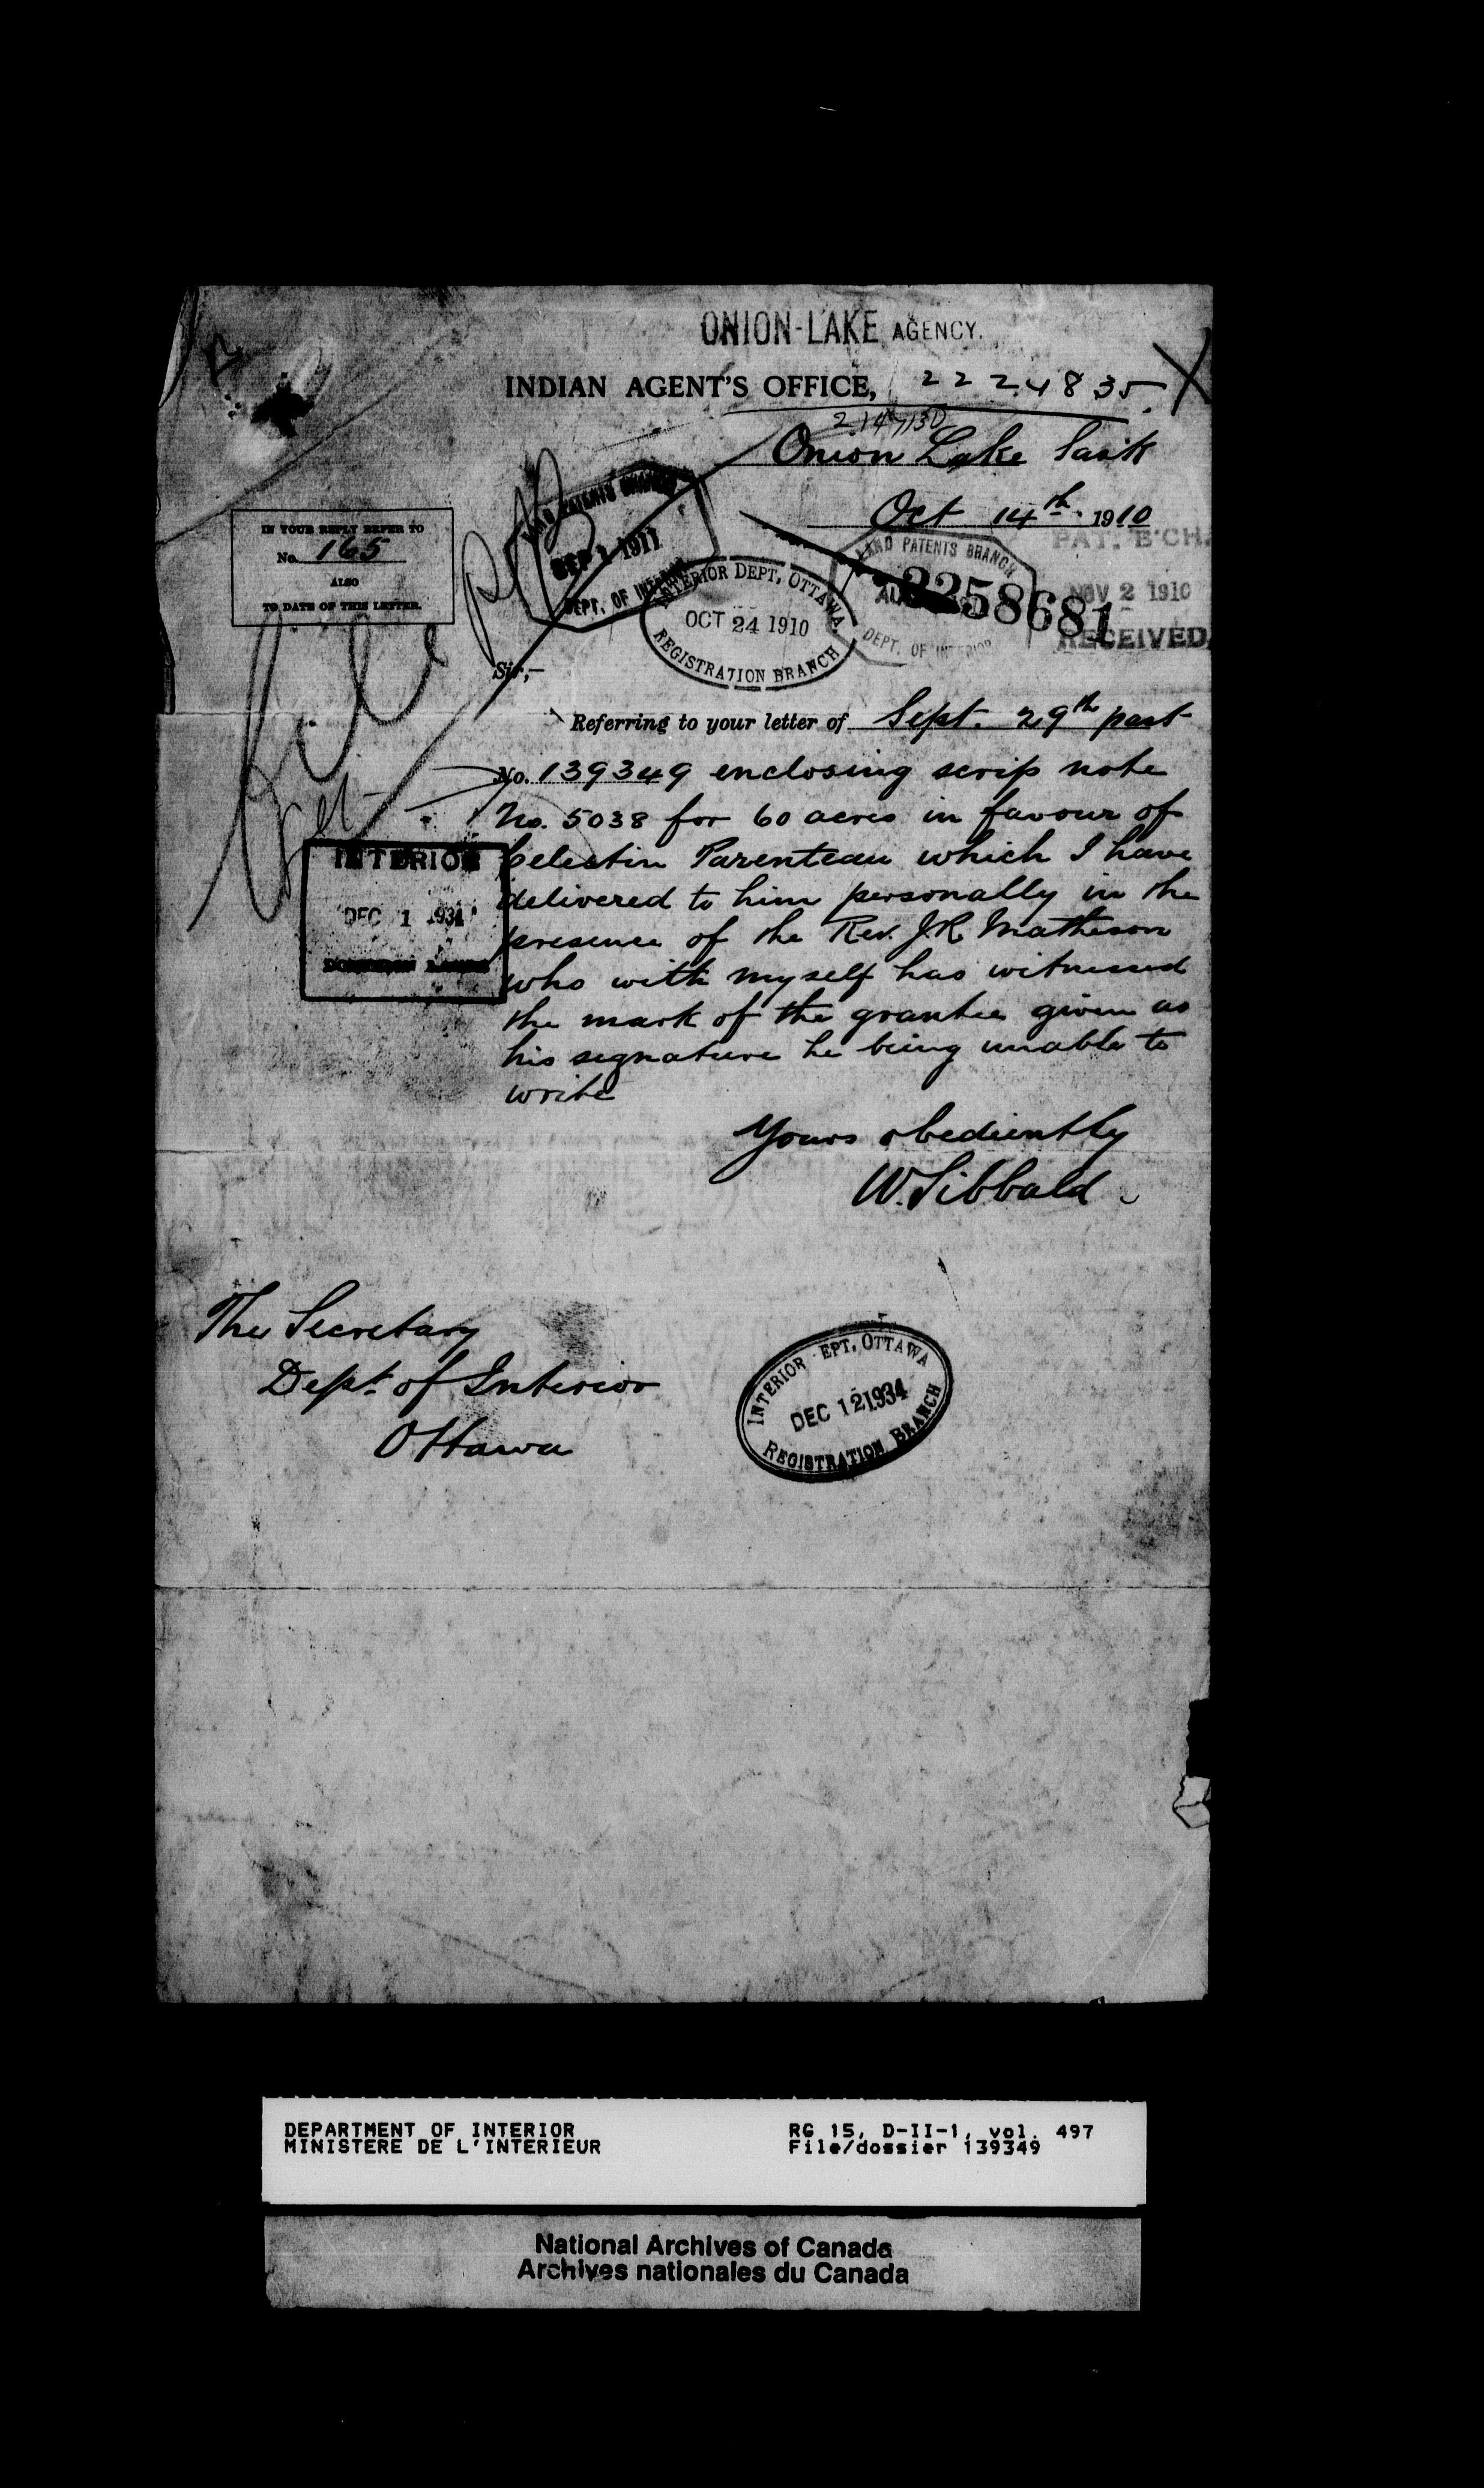 ONION-LAKE AGENCY.
INDIAN AGENT'S OFFICE, 2224835
2147130
Onion Lake Sask
Oct 14th 1910
IN YOUR REPLY REFER TO
No. 165
ALSO
TO DATE OF THIS LETTER.
LAND PATENTS BRANCH
SEP 1 1911
DEPT. OF INTERIOR
INTERIOR DEPT, OTTAWA
OCT 24 1910
REGISTRATION BRANCH
LAND PATENTS BRANCH
AU
DEPT. OF INTERIOR
2258681
PAT. B'CH.
NOV 2 1910
RECEIVED
Sir,—
Referring to your letter of Sept. 29th past
No. 139349 enclosing scrip note
No. 5038 for 60 acres in favour of
Celestin Parenteau which I have
delivered to him personally in the
presence of the Rev. J.R. Matheson
who with myself has witnessed
the mark of the grantee given as
his signature he being unable to
write
Yours obediently
W. Sibbald
INTERIOR
DEC 1 1934
DOMINION LANDS
The Secretary
Dept. of Interior
Ottawa
INTERIOR EPT, OTTAWA
DEC 12 1934
REGISTRATION BRANCH
DEPARTMENT OF INTERIOR
MINISTERE DE L'INTERIEUR
RG 15, D-II-1, vol. 497
File/dossier 139349
National Archives of Canada
Archives nationales du Canada